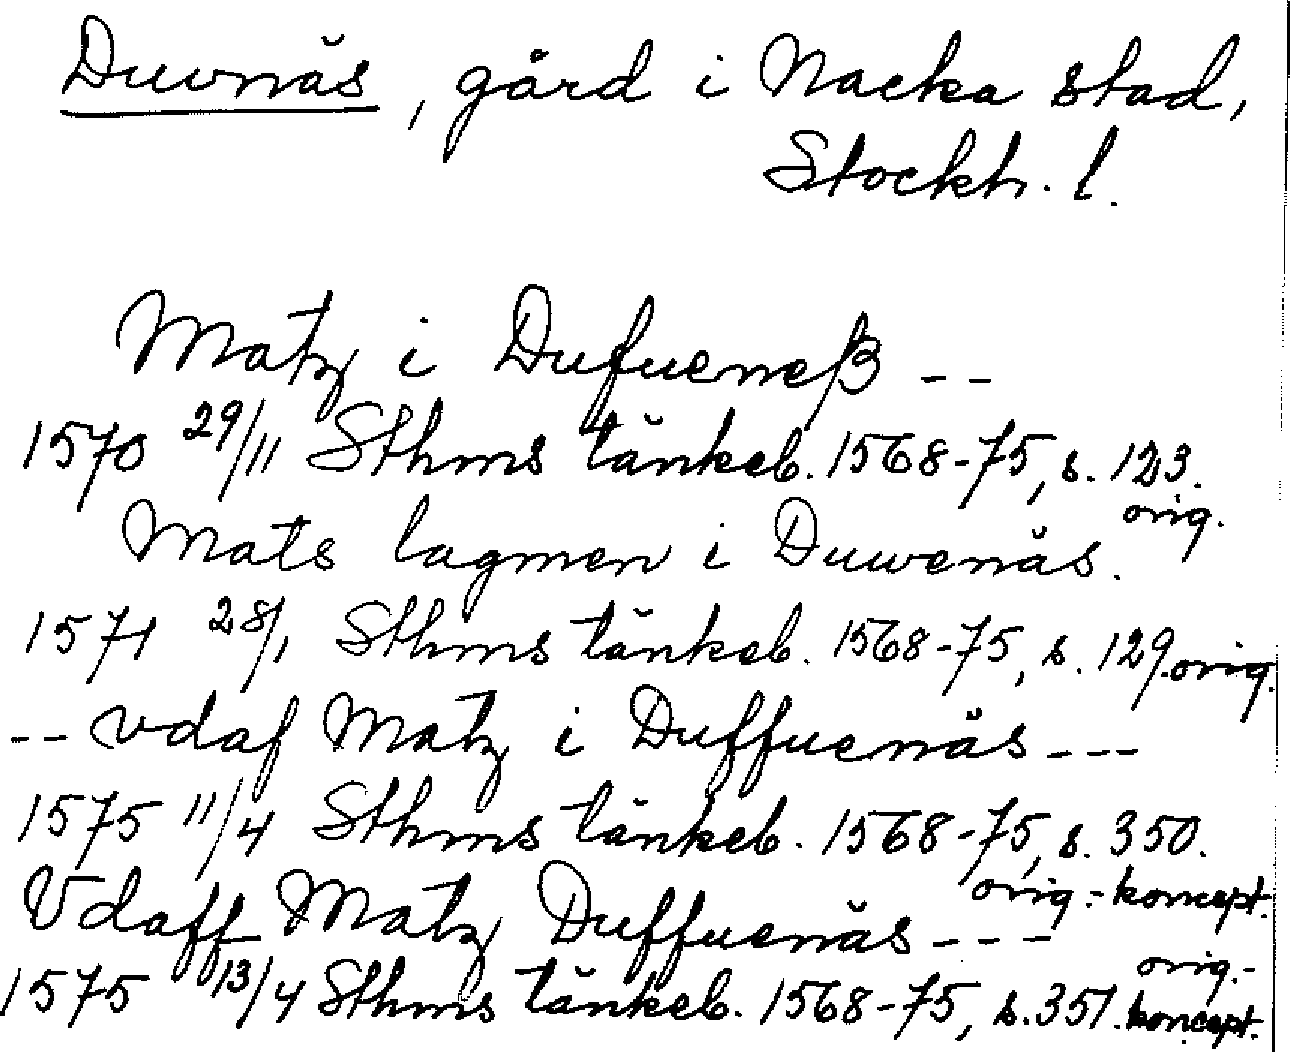 Duvnäs, gård i Nacka stad,
Stockh. l.
Matz i Dufueneß --
1570 29/11 Sthms tänkeb. 1568-75, s. 123.
orig.
Mats lagmen i Duwenäs.
1571 28/1 Sthms tänkeb. 1568-75, s. 129. orig.
-- vdaf Matz i Duffuenäs ---
1575 11/4 Sthms tänkeb. 1568-75, s. 350.
orig.-koncept.
Vdaff Matz Duffuenäs ---
orig.-
1575 13/4 Sthms tänkeb. 1568-75, s. 351. koncept.